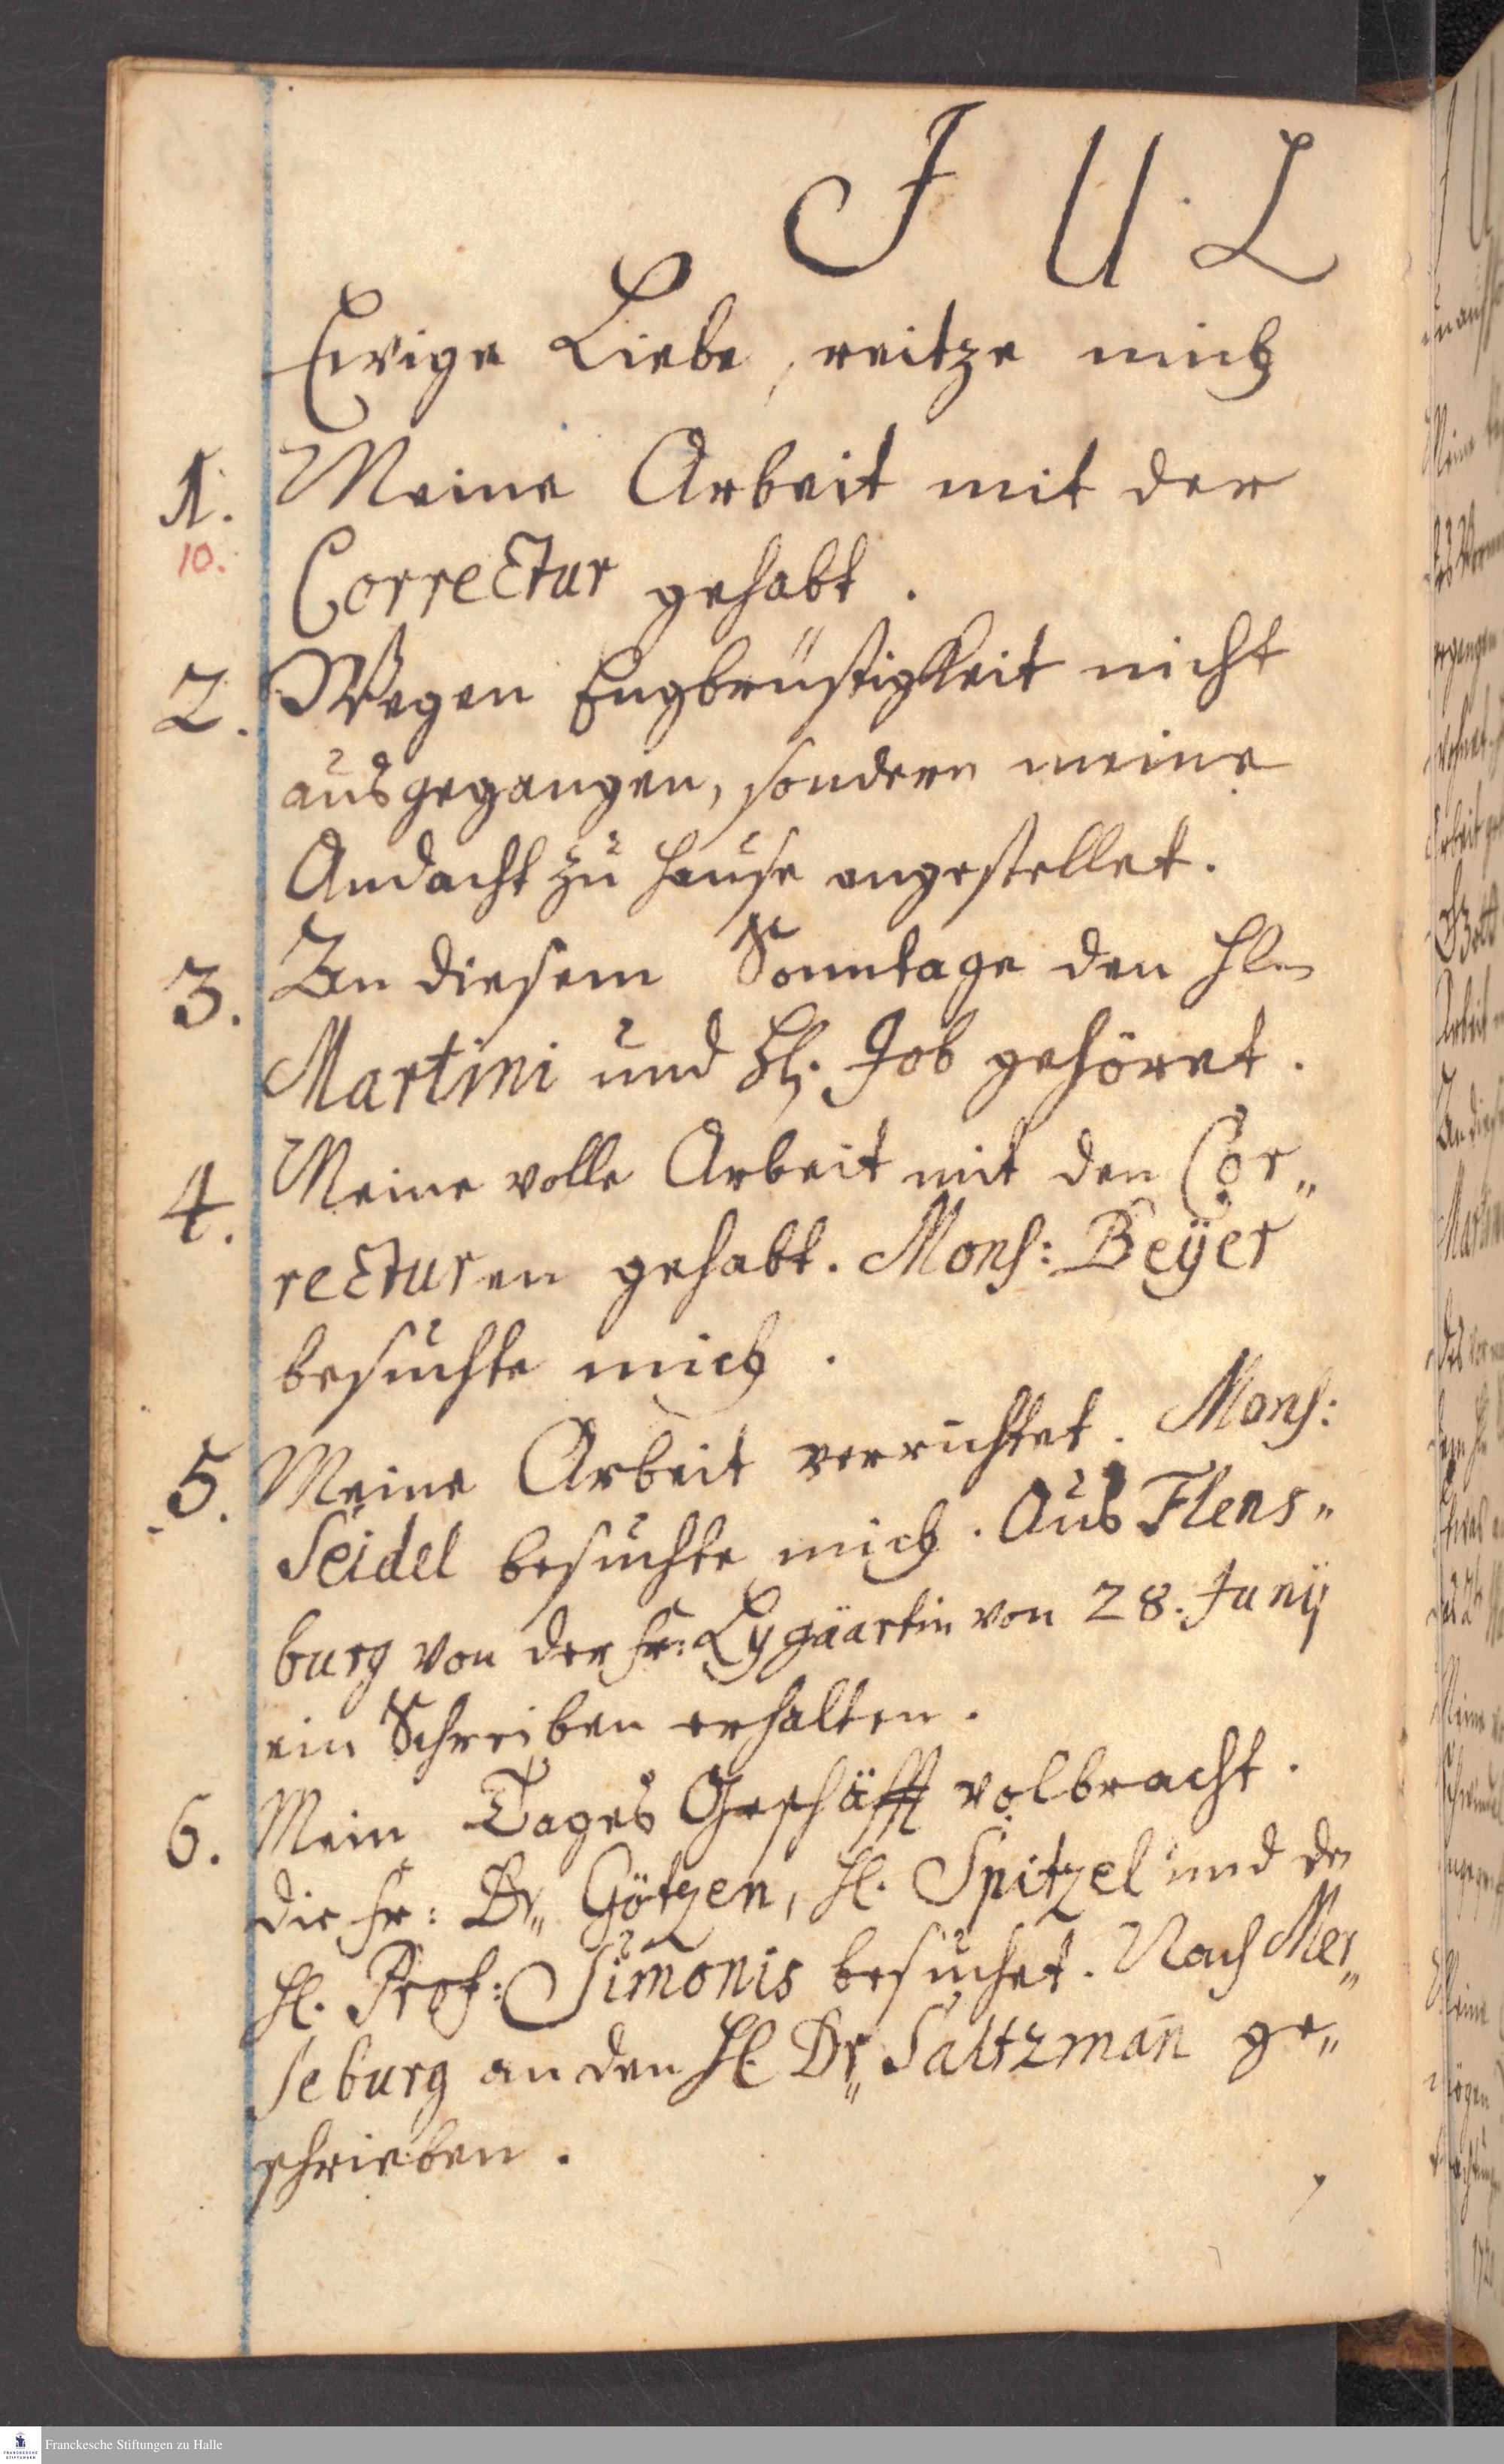 J U L
Ewige Liebe, reitze mich
1. Meine Arbeit mit der
10.
Correctur gehabt.
2. Wegen Engbrüstigkeit nicht
ausgegangen, sondern meine
Andacht zu Hause angestellet.
3. An diesem Sonntage den Hln
Martini und Hl. Job gehöret.
4. Meine volle Arbeit mit den Cor„
recturen gehabt. Mons: Beÿer
besuchte mich.
5. Meine Arbeit verrichtet. Mons:
Seidel besuchte mich. Aus Flens„
burg von der Fr: von 28. Junij
ein Schreiben erhalten.
6. Mein Tages Geschäfft volbracht.
die Fr: Dr„ Götzen, Hl. Spitzel und den
Hl. Prof: Simonis besuchet. Nach Mer„
seburg an den Hl. Dr„ Saltzman̄ ge„
schrieben.
Franckesche Stiftungen zu Halle